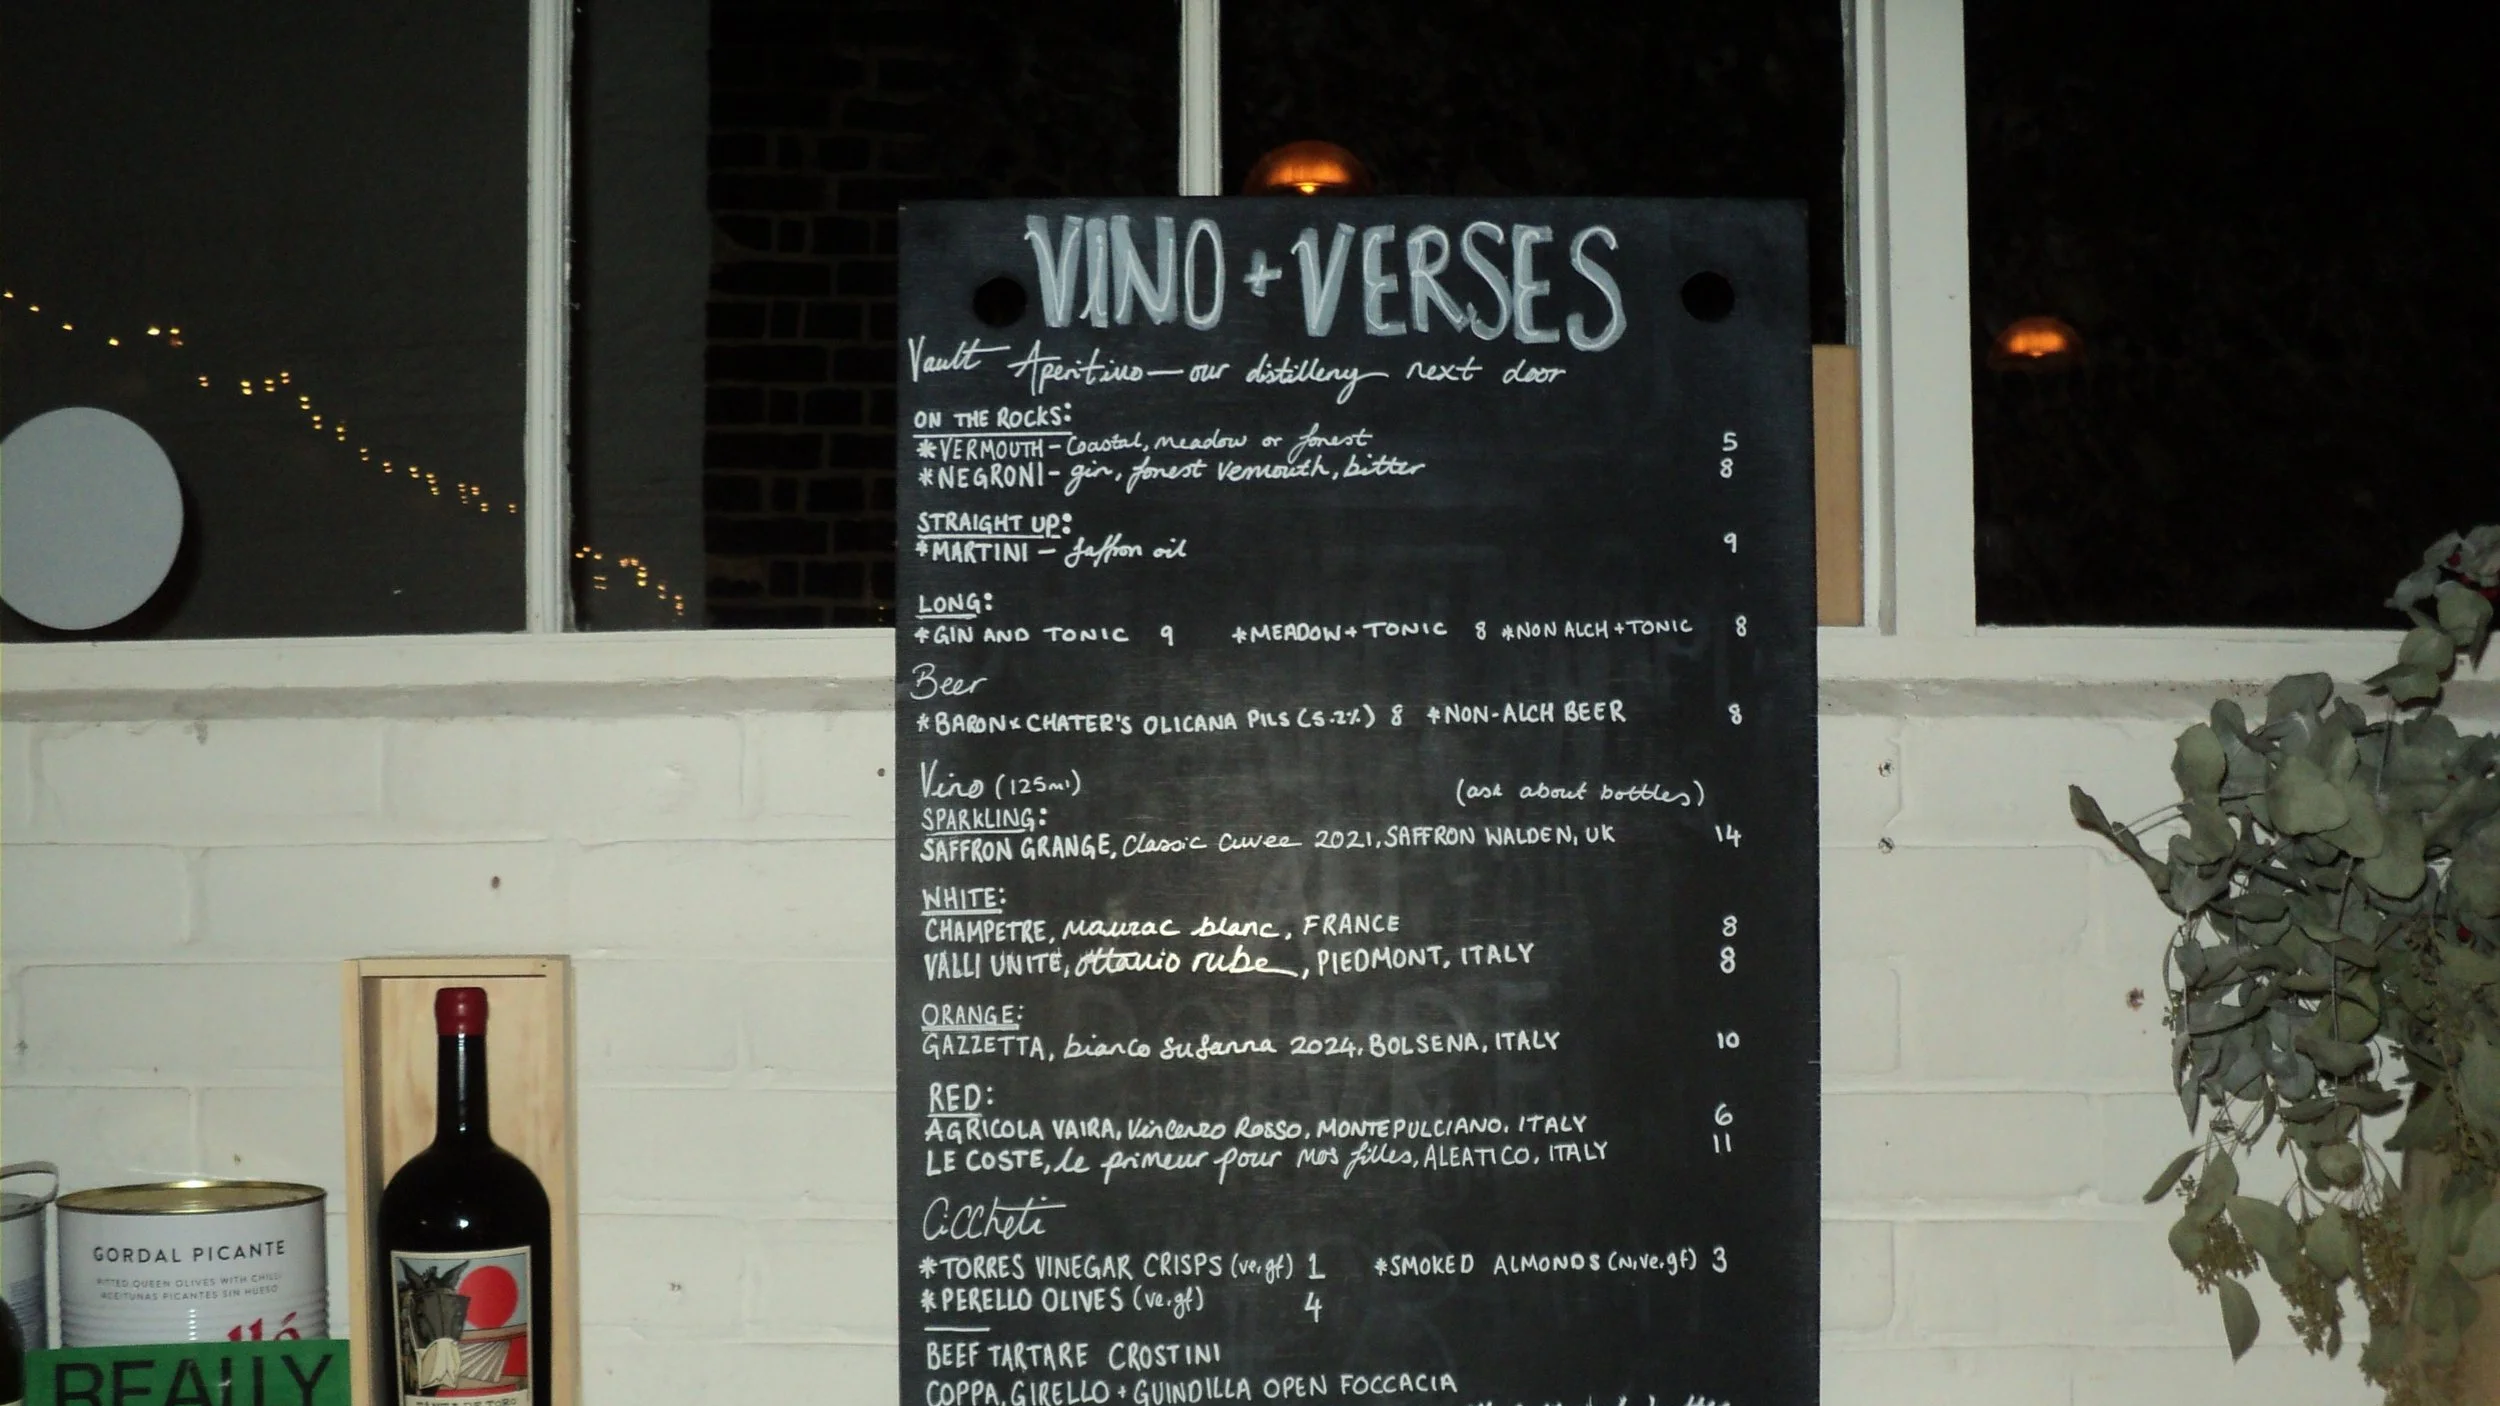 VINO + VERSES
Vault Aperitivo — our distillery next door
ON THE ROCKS:
*VERMOUTH - Coastal, meadow or forest 5
*NEGRONI - gin, forest vermouth, bitter 8
STRAIGHT UP:
*MARTINI - saffron oil 9
LONG:
*GIN AND TONIC 9 *MEADOW + TONIC 8 *NON ALCH + TONIC 8
Beer
*BARON x CHATER'S OLICANA PILS (5.2%) 8 *NON-ALCH BEER 8
Vino (125ml) (ask about bottles)
SPARKLING:
SAFFRON GRANGE, Classic Cuvee 2021, SAFFRON WALDEN, UK 14
WHITE:
CHAMPETRE, mauzac blanc, FRANCE 8
VALLI UNITE, ottavio rube, PIEDMONT, ITALY 8
ORANGE:
GAZZETTA, bianco susanna 2024, BOLSENA, ITALY 10
RED:
AGRICOLA VAIRA, Vincenzo Rosso, MONTEPULCIANO, ITALY 6
LE COSTE, le primeur pour mos filles, ALEATICO, ITALY 11
Ciccheti
*TORRES VINEGAR CRISPS (ve, gf) 1 *SMOKED ALMONDS (N, ve, gf) 3
*PERELLO OLIVES (ve, gf) 4
BEEF TARTARE CROSTINI
COPPA, GIRELLO + GUINDILLA OPEN FOCCACIA
GORDAL PICANTE
PITTED QUEEN OLIVES WITH CHILLI
ACEITUNAS PICANTES SIN HUESO